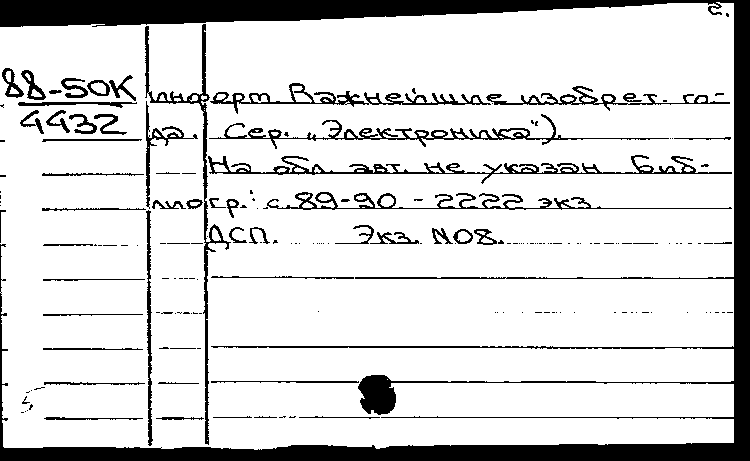 2.
88-50К информ. Важнейшие изобрет. го-
4432 да. Сер. „Электроника").
На обл. авт. не указан Биб-
лиогр.: с. 89-90 - 2222 экз.
ДСП. Экз. N08.
5